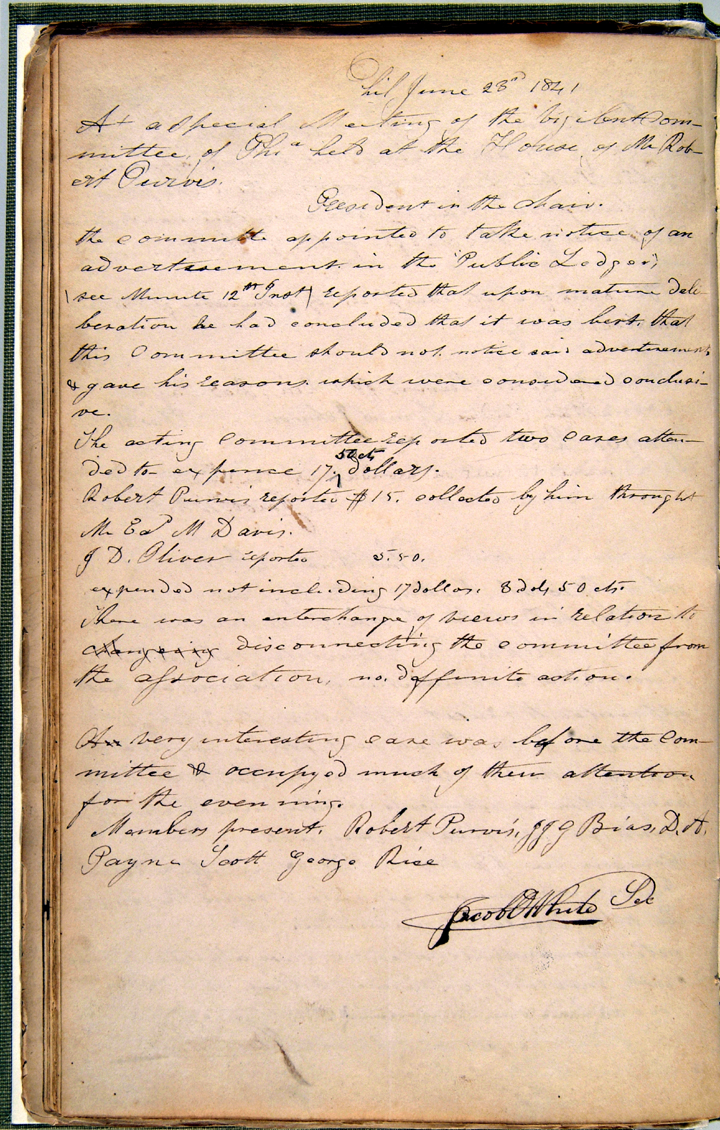 Phil June 23rd 1841
At a Special Meeting of the Vigilent Com-
mittee, of Phia held at the House, of Mr Rob-
ert Purvis.
President in the chair.
the committe appointed to take notice of an
advertisement in the "Public Ledger,"
(see Minute 12th Inst) reported that upon mature deli-
beration he had concluded that it was best, that
this Committee should not notice said advertisement,
& gave his reasons which were considered conclusi-
ve.
The acting Committee reported two cases atten-
ded to expence 17, 50 cts dollars.
Robert Purvis reported $15. collected by him throught
Mr Ed. M Davis.
J D. Oliver reported 5.50.
expended not including 17 dollars. 8 dols, 50 cts
There was an enterchange of views in relation to
disconnecting the committee from
the association, no. deffinite action.
very interesting case was before the Com-
mittee & occupyed much of their attention
for the evening.
Members present, Robert Purvis, JJG Bias, D. A.
Payne Scott George Rice
Jacob C White Sec